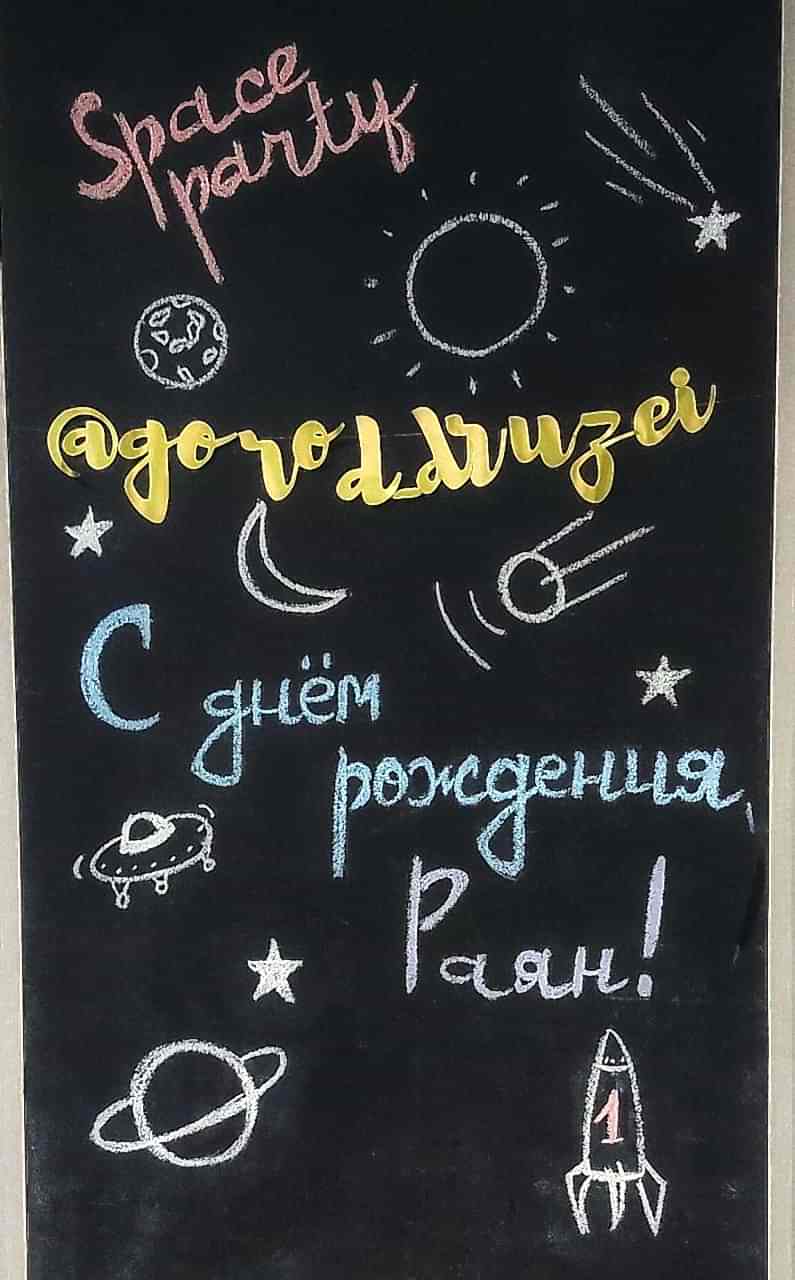 Space
party
@gorod_druzei
С днём
рождения,
Раян!
1